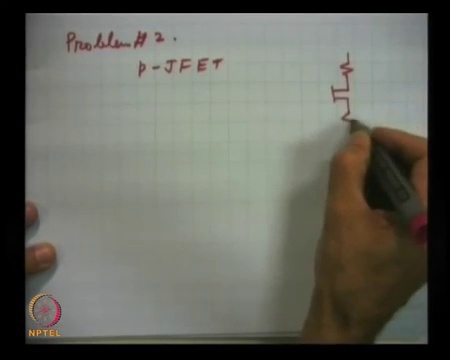 Problem # 2.
p-JFET
NPTEL